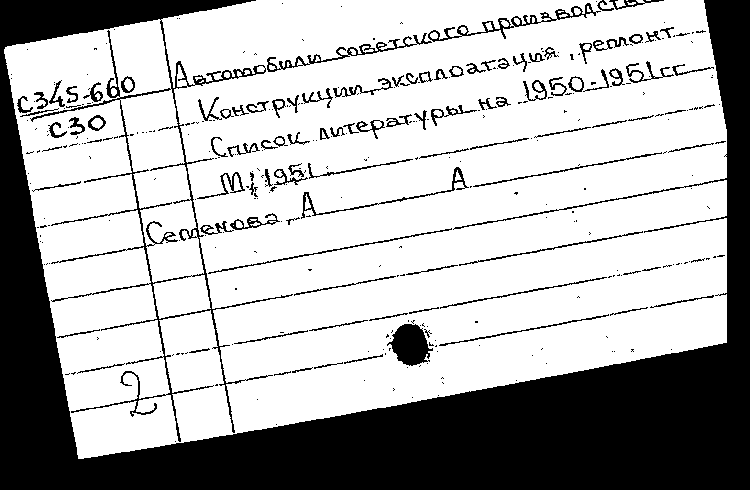 Автомобили советского производства.
С345-660
С30
Конструкции, эксплоатация, ремонт.
Список литературы на 1950-1951гг
М., 1951.
Семенова, А А
2